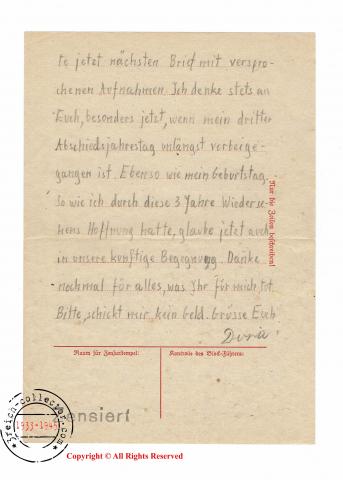 te jetzt nächsten Brief mit verspro-
chenen Aufnahmen. Ich denke stets an
Euch, besonders jetzt, wenn mein dritter
Abschiedsjahrestag unlängst vorbeige-
gangen ist. Ebenso wie mein Geburtstag.
So wie ich durch diese 3 Jahre Wiederse-
hens Hoffnung hatte, glaube jetzt auch
in unsere künftige Begegnung. Danke
nochmal für alles, was Ihr für mich tut.
Bitte, schickt mir kein Geld. Grüsse Euch
Nur die Zeilen beschreiben!
Raum für Zensurstempel:
Kontrolle des Block-Führers:
zensiert
*3reich-collector.com*
1933-1945
Copyright © All Rights Reserved